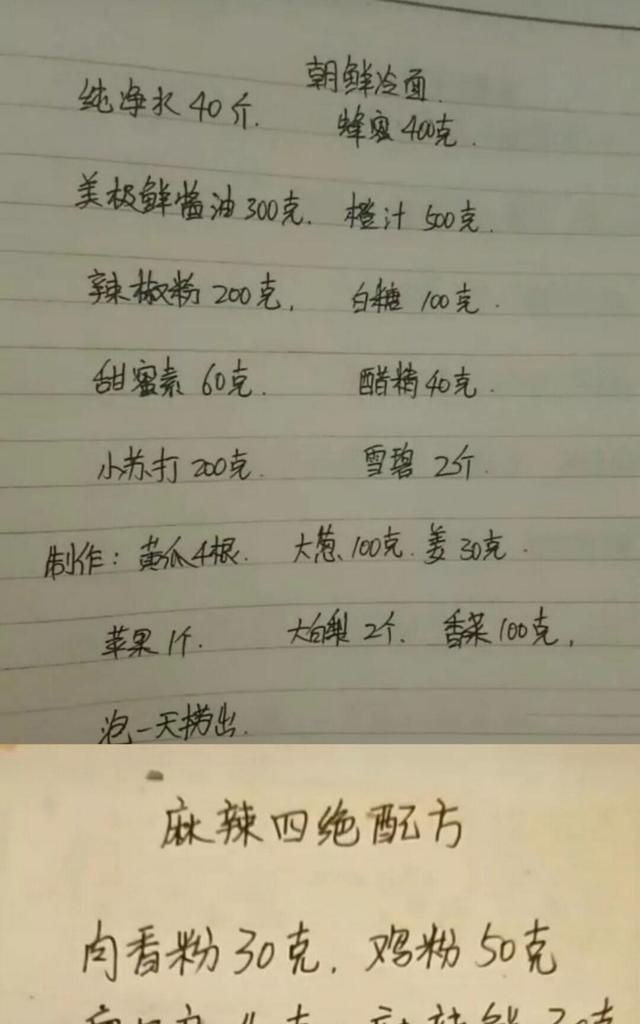 朝鲜冷面.
纯净水 40斤. 蜂蜜 400克.
美极鲜酱油300克. 橙汁 500克.
辣椒粉 200克, 白糖 100克.
甜蜜素 60克. 醋精 40克.
小苏打 200克. 雪碧 2斤.
制作: 黄瓜4根. 大葱100克. 姜30克.
苹果1个. 大白梨 2个. 香菜100克,
泡一天捞出.
麻辣四绝配方
肉香粉30克, 鸡粉50克